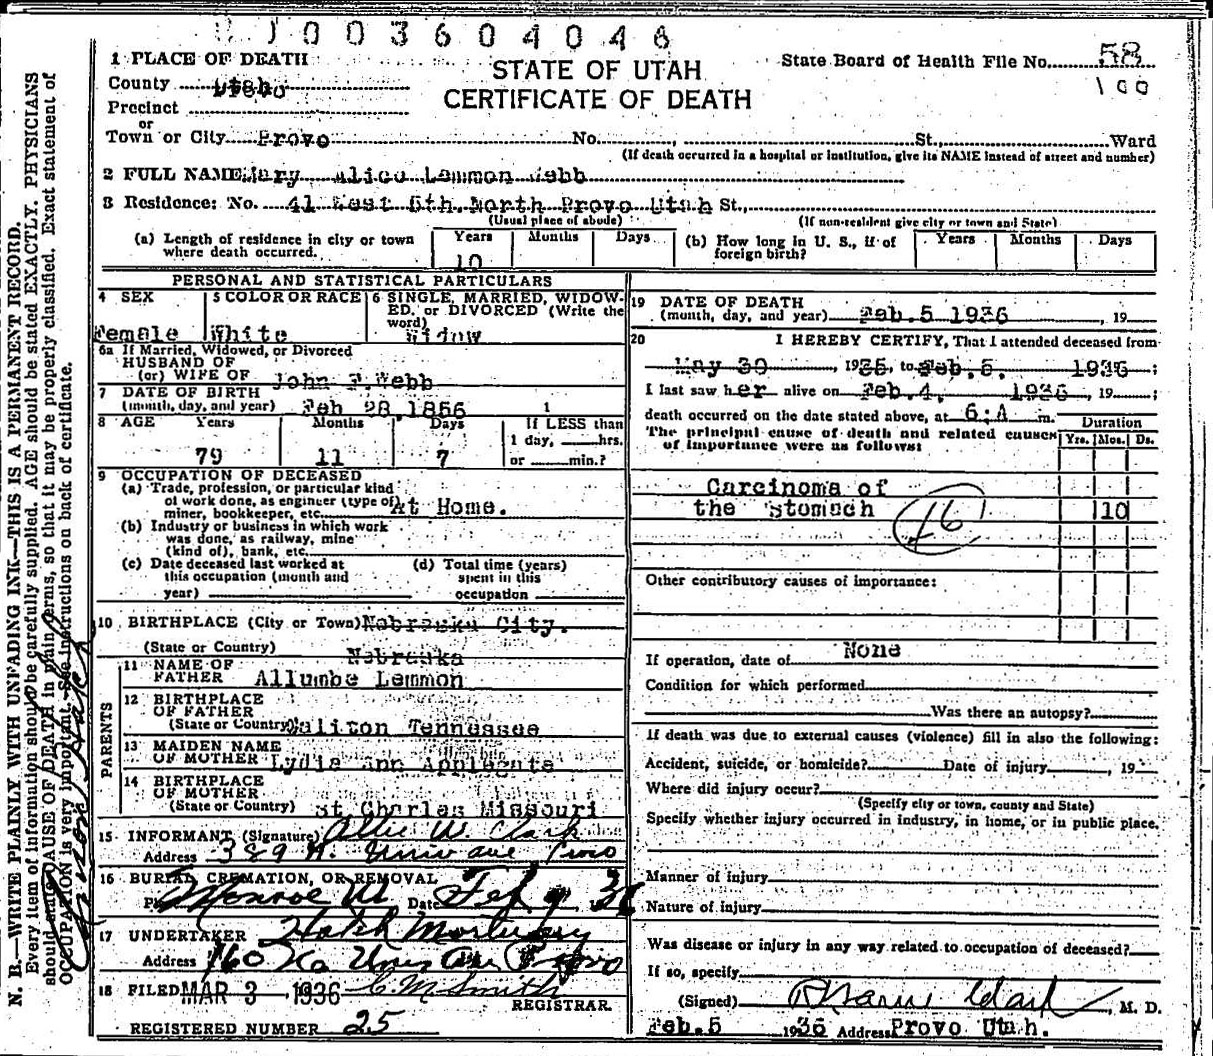 1003604046
1 PLACE OF DEATH
STATE OF UTAH
CERTIFICATE OF DEATH
State Board of Health File No. 58
100
County Utah
Precinct
or
Town or City Provo No. St., Ward
(If death occurred in a hospital or institution, give its NAME instead of street and number)
2 FULL NAME Mary Alice Lemmon Webb
3 Residence: No. 41 East 5th. North Provo Utah St.,
(Usual place of abode) (If non-resident give city or town and State)
(a) Length of residence in city or town where death occurred. Years 10 Months Days
(b) How long in U. S., if of foreign birth? Years Months Days
PERSONAL AND STATISTICAL PARTICULARS
4 SEX Female
5 COLOR OR RACE White
6 SINGLE, MARRIED, WIDOWED, or DIVORCED (Write the word) Widow
6a If Married, Widowed, or Divorced
HUSBAND OF
(or) WIFE OF John F. Webb
7 DATE OF BIRTH
(month, day, and year) Feb 28, 1856 1
8 AGE Years Months Days If LESS than
1 day, hrs.
79 11 7 or min.?
9 OCCUPATION OF DECEASED
(a) Trade, profession, or particular kind
of work done, as engineer (type of)
miner, bookkeeper, etc. At Home.
(b) Industry or business in which work
was done, as railway, mine
(kind of), bank, etc.
(c) Date deceased last worked at
this occupation (month and
year)
(d) Total time (years)
spent in this
occupation
10 BIRTHPLACE (City or Town) Nebraska City.
(State or Country) Nebraska
PARENTS
11 NAME OF
FATHER Allumbe Lemmon
12 BIRTHPLACE
OF FATHER
(State or Country) Tennessee
13 MAIDEN NAME
OF MOTHER Lydia Ann Applegate
14 BIRTHPLACE
OF MOTHER
(State or Country) St Charles Missouri
15 INFORMANT (Signature) Allie W. Clark
Address 389 N. Univ ave Provo
16 BURIAL, CREMATION, OR REMOVAL
Monroe U. Date Feb 9 36
17 UNDERTAKER Hatch Mortuary
Address 160 No Univ Ave Provo
18 FILED MAR 3 1936 C M Smith
REGISTRAR.
REGISTERED NUMBER 25
19 DATE OF DEATH
(month, day, and year) Feb. 5 1936, 19
20 I HEREBY CERTIFY, That I attended deceased from
May 30, 1935, to Feb. 5. 1936;
I last saw her alive on Feb. 4. 1936, 19;
death occurred on the date stated above, at 6:A m.
The principal cause of death and related causes
of importance were as follows:
Duration
Yrs. Mos. Ds.
Carcinoma of
the Stomach 46 10
Other contributory causes of importance:
If operation, date of None
Condition for which performed
Was there an autopsy?
If death was due to external causes (violence) fill in also the following:
Accident, suicide, or homicide? Date of injury, 19
Where did injury occur?
(Specify city or town, county and State)
Specify whether injury occurred in industry, in home, or in public place.
Manner of injury
Nature of injury
Was disease or injury in any way related to occupation of deceased?
If so, specify
(Signed) Clark, M. D.
Feb. 5 1936 Address Provo Utah.
N. B.—WRITE PLAINLY WITH UNFADING INK—THIS IS A PERMANENT RECORD.
Every item of information should be carefully supplied. AGE should be stated EXACTLY. PHYSICIANS
should state CAUSE OF DEATH in plain terms, so that it may be properly classified. Exact statement of
OCCUPATION is very important. See instructions on back of certificate.